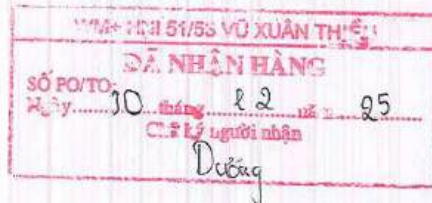 WM+ HNI 51/53 VŨ XUÂN THIỀU
ĐÃ NHẬN HÀNG
SỐ PO/TO:
Ngày 30 tháng 12 năm 25
Chữ ký người nhận
Dương